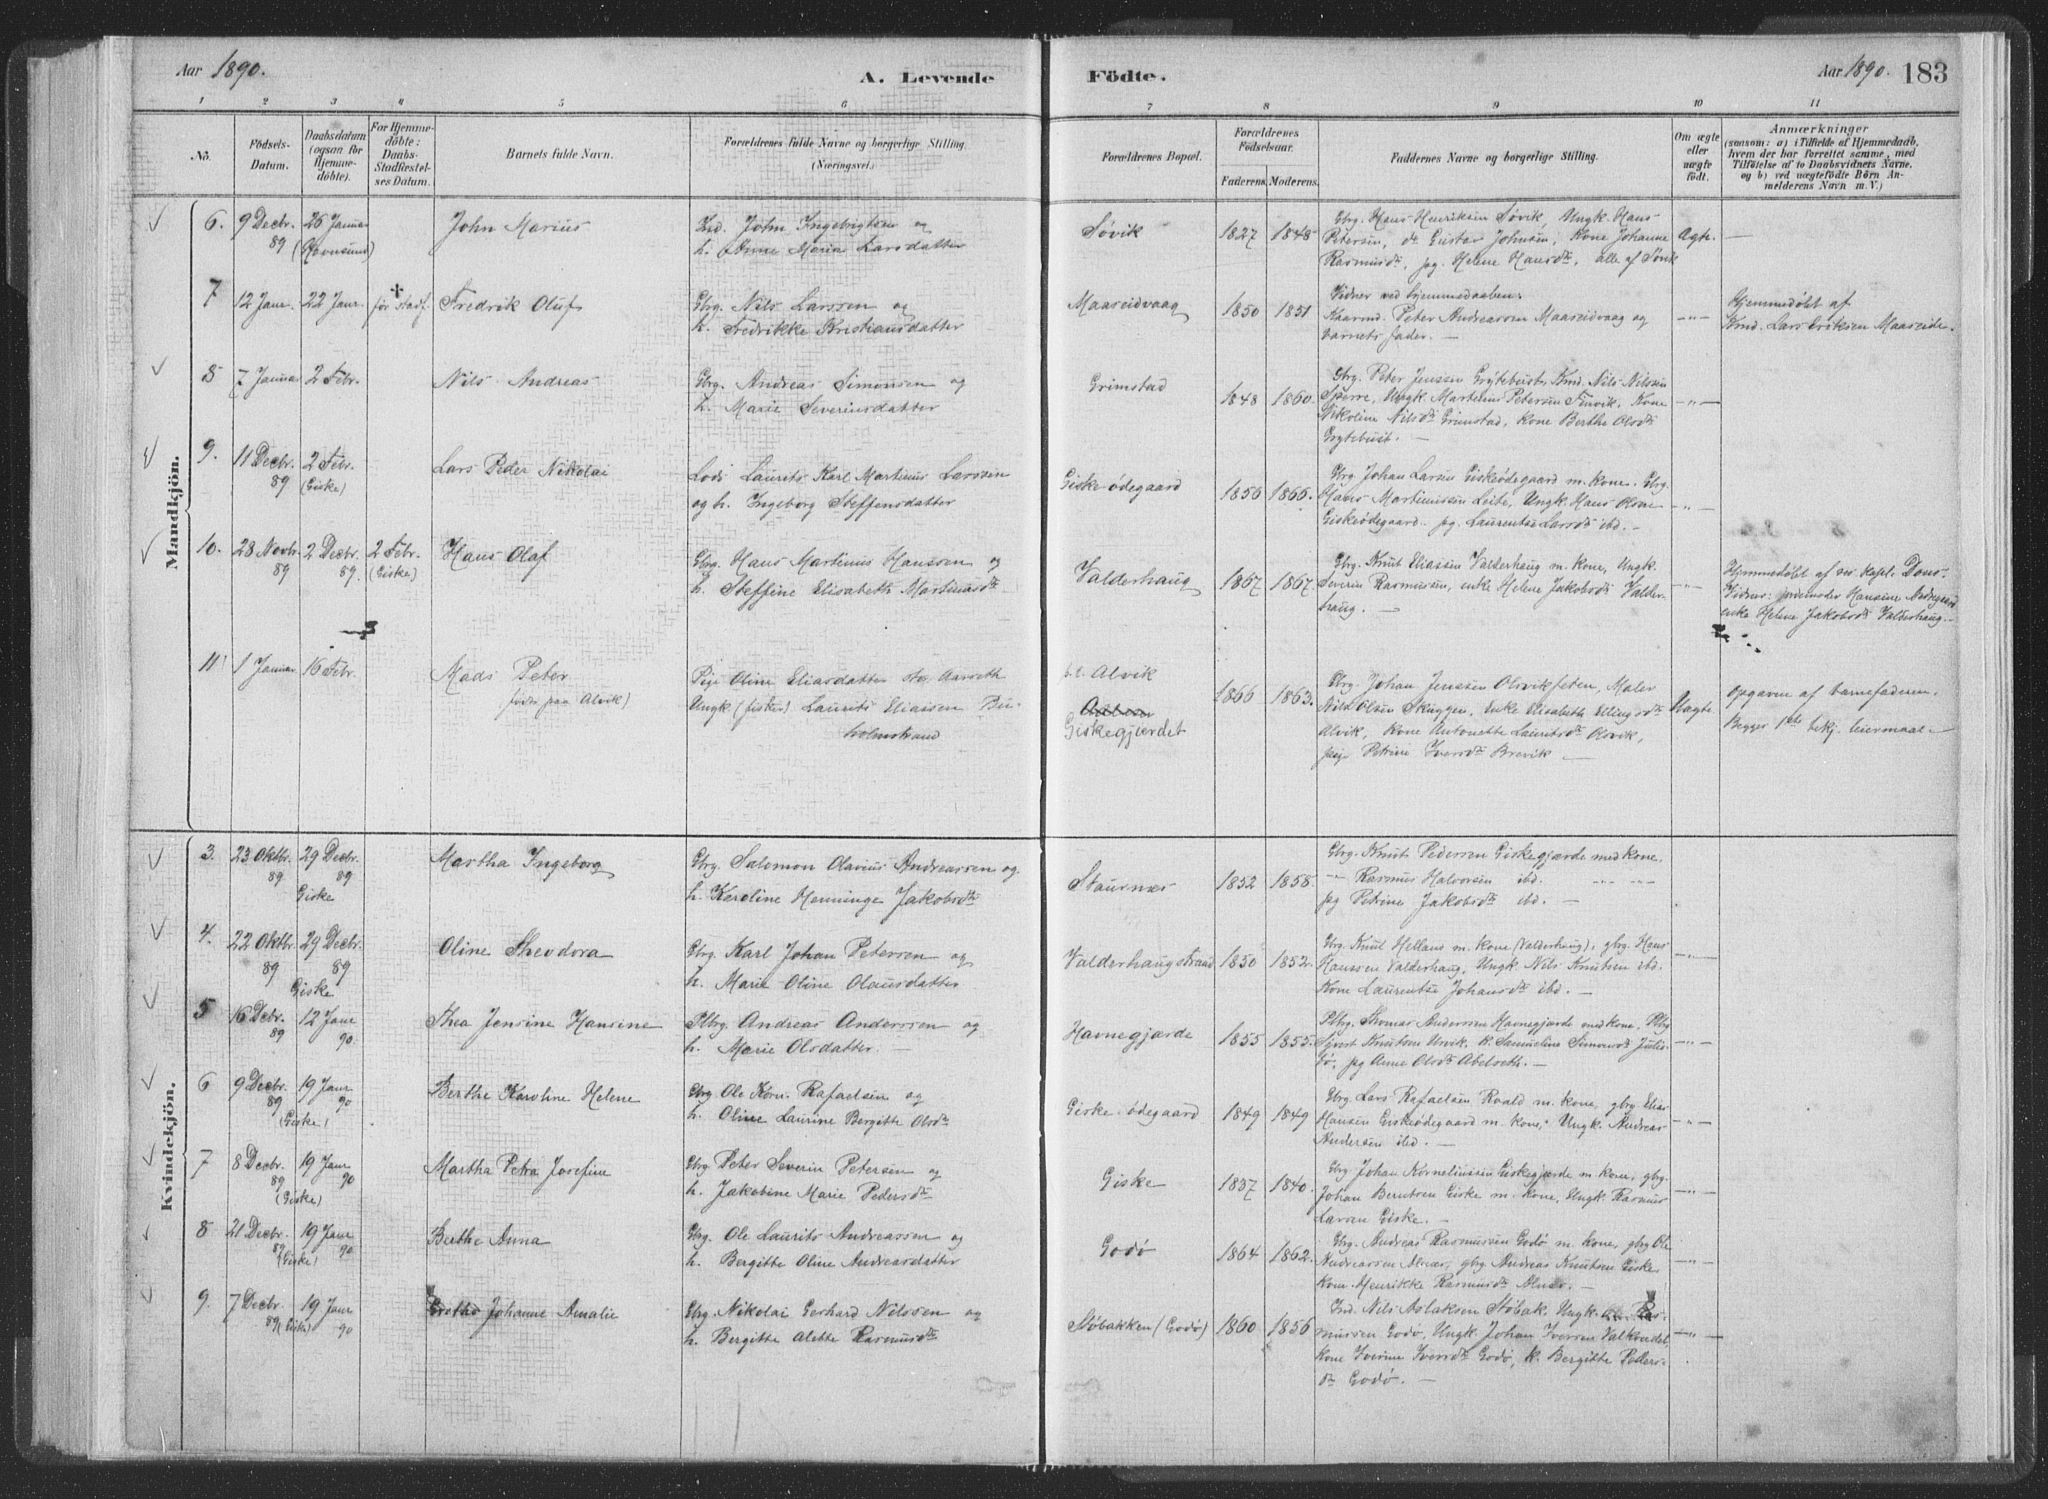 Aar 1890. A. Levende
Födte. Aar 1890. 183
1 2 3 4 5 6 7 8 9 10 11
No.
Födsels-Datum.
Daabsdatum (ogsaa for Hjemme-döbte).
For Hjemme-döbte: Daabs-Stadfæstel-ses Datum.
Barnets fulde Navn.
Forældrenes fulde Navne og borgerlige Stilling. (Næringsvei.)
Forældrenes Bopæl.
Forældrenes Födselsaar.
Faderens. Moderens.
Faddernes Navne og borgerlige Stilling.
Om ægte eller uægte födt.
Anmærkninger
(saasom: a) i Tilfælde af Hjemmedaab,
hvem der har forrettet samme, med
Tilföielse af to Daabsvidners Navne,
og b) ved uægtefödte Börn An-
melderens Navn m. V.)
Mandkjön.
6. 9 Decbr. 89 26 Januar John Marius
Ind. John Ingebrigtsen og
h. Anne Maria Larsdatter
Søvik 1827 1848
Gbrg. Hans Henriksen Søvik, Ungk. Hans
Petersen, do Gustav Johnsen, Kone Johanne
Rasmusdr., pg. Helene Hansdr., alle af Søvik
Ægte. —
7 12 Janr. 22 Janr. før stadf. Fredrik Oluf
Gbrg. Nils Larssen og
h. Fredrikke Kristiansdatter
Maaseidvaag 1850 1851
Vidner ved hjemmedaaben:
Kaarmd. Peter Andreassen Maaseidvaag og
barnets fader. —
—"—
Hjemmedøbt af
Kmd. Lars Eriksen Maaseide.
8 7 Januar 2 Febr. Nils Andreas
Gbrg. Andreas Simonsen og
h. Marie Severinsdatter
Grimstad 1848 1860.
Gbrg. Peter Jenssen Grytebust, Kmd. Nils Nilssen
Sperre, Ungk. Martinus Petersen Kone
Nikoline Nilsdr. Grimstad, Kone Berthe Olsdr.
Grytebust. —
—"—
9. 11 Decbr. 89 2 Febr. (Giske) Lars Peder Nikolai
Lods Laurits Karl Martinus Larssen
og h. Ingeborg Steffensdatter
Giske ødegaard 1856 1866.
Gbrg. Johan Larsen Giskeødegaard m. kone. Gbrg.
Hans Martinussen Leite, Ungk. Hans Olsen
Giskeødegaard. pg. Laurentse Larsdr. ibd. —
—"—
10. 28 Novbr. 89 2 Decbr. 89. 2 Febr. (Giske) Hans Olaf
Gbrg. Hans Martinus Hanssen og
h. Steffine Elisabeth Martinusdr.
Valderhaug 1867 1867.
Gbrg. Knut Eliassen Valderhaug m. kone, Ungk.
Severin Rasmussen, enke Helene Jakobsdr. Valder-
haug. —
—"—
Hjemmedøbt af res. kapl. Dons.
Vidner: jordemoder Hansine
enke Helene Jakobsdr. Valderhaug. —
11 1 Januar 16 Febr. Mads Peter
(født paa Alvik)
Pige Oline Eliasdatter Aarseth
Ungk. (fisker) Laurits Eliassen Bu-
holmstrand
p.t. Alvik
Giskegjærdet
1866 1863.
Gbrg. Johan Jenssen Olsvikfeten, Maler
Nils Olsen Skuggen, Enke Elisabeth Ellingsdr.
Alvik, Kone Antonette Lauritsdr. Olsvik,
pige Petrine Iversdr. Brevik —
Uægte.
opgaven af barnefaderen.
Begges 1ste bekj. leiermaal. —
Kvindekjön.
3. 23 Oktbr. 89 29 Decbr. 89 Giske Martha Ingeborg
Gbrg. Salomon Olavius Andreassen og
h. Karoline Henninge Jakobsdr.
Staurnes 1852 1858.
Gbrg. Knut Pedersen Giskegjærde med kone.
—"— Rasmus Halvorsen ibd. —"— —"—
pg Petrine Jakobsdr. ibd. —
4. 22 Oktbr. 89 29 Decbr. 89 Giske Oline Theodora
Gbrg. Karl Johan Petersen og
h. Marie Oline Olausdatter
Valderhaugstrand 1850 1852.
Gbrg. Knut Hellans m. kone (Valderhaug), gbrg. Hans
Hanssen Valderhaug, Ungk. Nils Knutsen ibd.
Kone Laurentse Johansdr. ibd. —
—"—
5 16 Decbr. 89 12 Janr. 90. Thea Jensine Hansine
Plbrg. Andreas Anderssen og
h. Marie Olsdatter.
Havnegjærde 1855 1855.
Plbrg. Thomas Anderssen Havnegjærde med kone, Plbrg
Sjvert Knutsen Urvik, k. Samueline Simonsdr. Julie-
bø, pg Anne Olsdr. Abelseth. —
—"—
6 9 Decbr. 89 19 Janr. 90 (Giske) Berthe Karoline Helene
Gbrg. Ole Korn. Rafaelsen og
h. Oline Laurine Bergitte Olsdr.
Giske ødegaard 1849 1849
Gbrg. Lars Rafaelsen Roald m. kone, gbrg. Elias
Hansen Giskeødegaard m. kone, Ungk. Andreas
Andersen ibd. —
—"—
7 8 Decbr. 89 19 Janr. 90 (Giske) Martha Petra Josefine
Gbrg. Peter Severin Petersen og
h. Jakobine Marie Pedersdr.
Giske 1837 1840.
Gbrg. Johan Korneliussen Giskegjærde m. kone, gbrg.
Johan Berntsen Giske m. kone, Ungk. Rasmus
Larsen Giske. —
—"—
8 21 Decbr. 89 19 Janr. 90 (Giske) Berthe Anna
Gbrg. Ole Laurits Andreassen og
h. Bergitte Oline Andreasdatter
Godø 1864 1862.
Gbrg. Andreas Rasmussen Godø m. kone, gbrg Ole
Andreassen Alnes, gbrg Andreas Knutsen Giske
Kone Henrikke Rasmusdr. Alnes. —
—"—
9. 7 Decbr. 89 (Giske) 19 Janr. 90 Grethe Johanne Amalie
Gbrg. Nikolai Gerhard Nilssen og
h. Bergitte Alette Rasmusdr.
Støbakken (Godø) 1860 1856
Ind. Nils Aslaksen Støbak, Ungk. Ras-
mussen Godø, Ungk. Johan Iversen Valkvedet,
kone Iverine Iversdr. Godø, k. Bergitte Peders-
dr. Godø. —
—"—